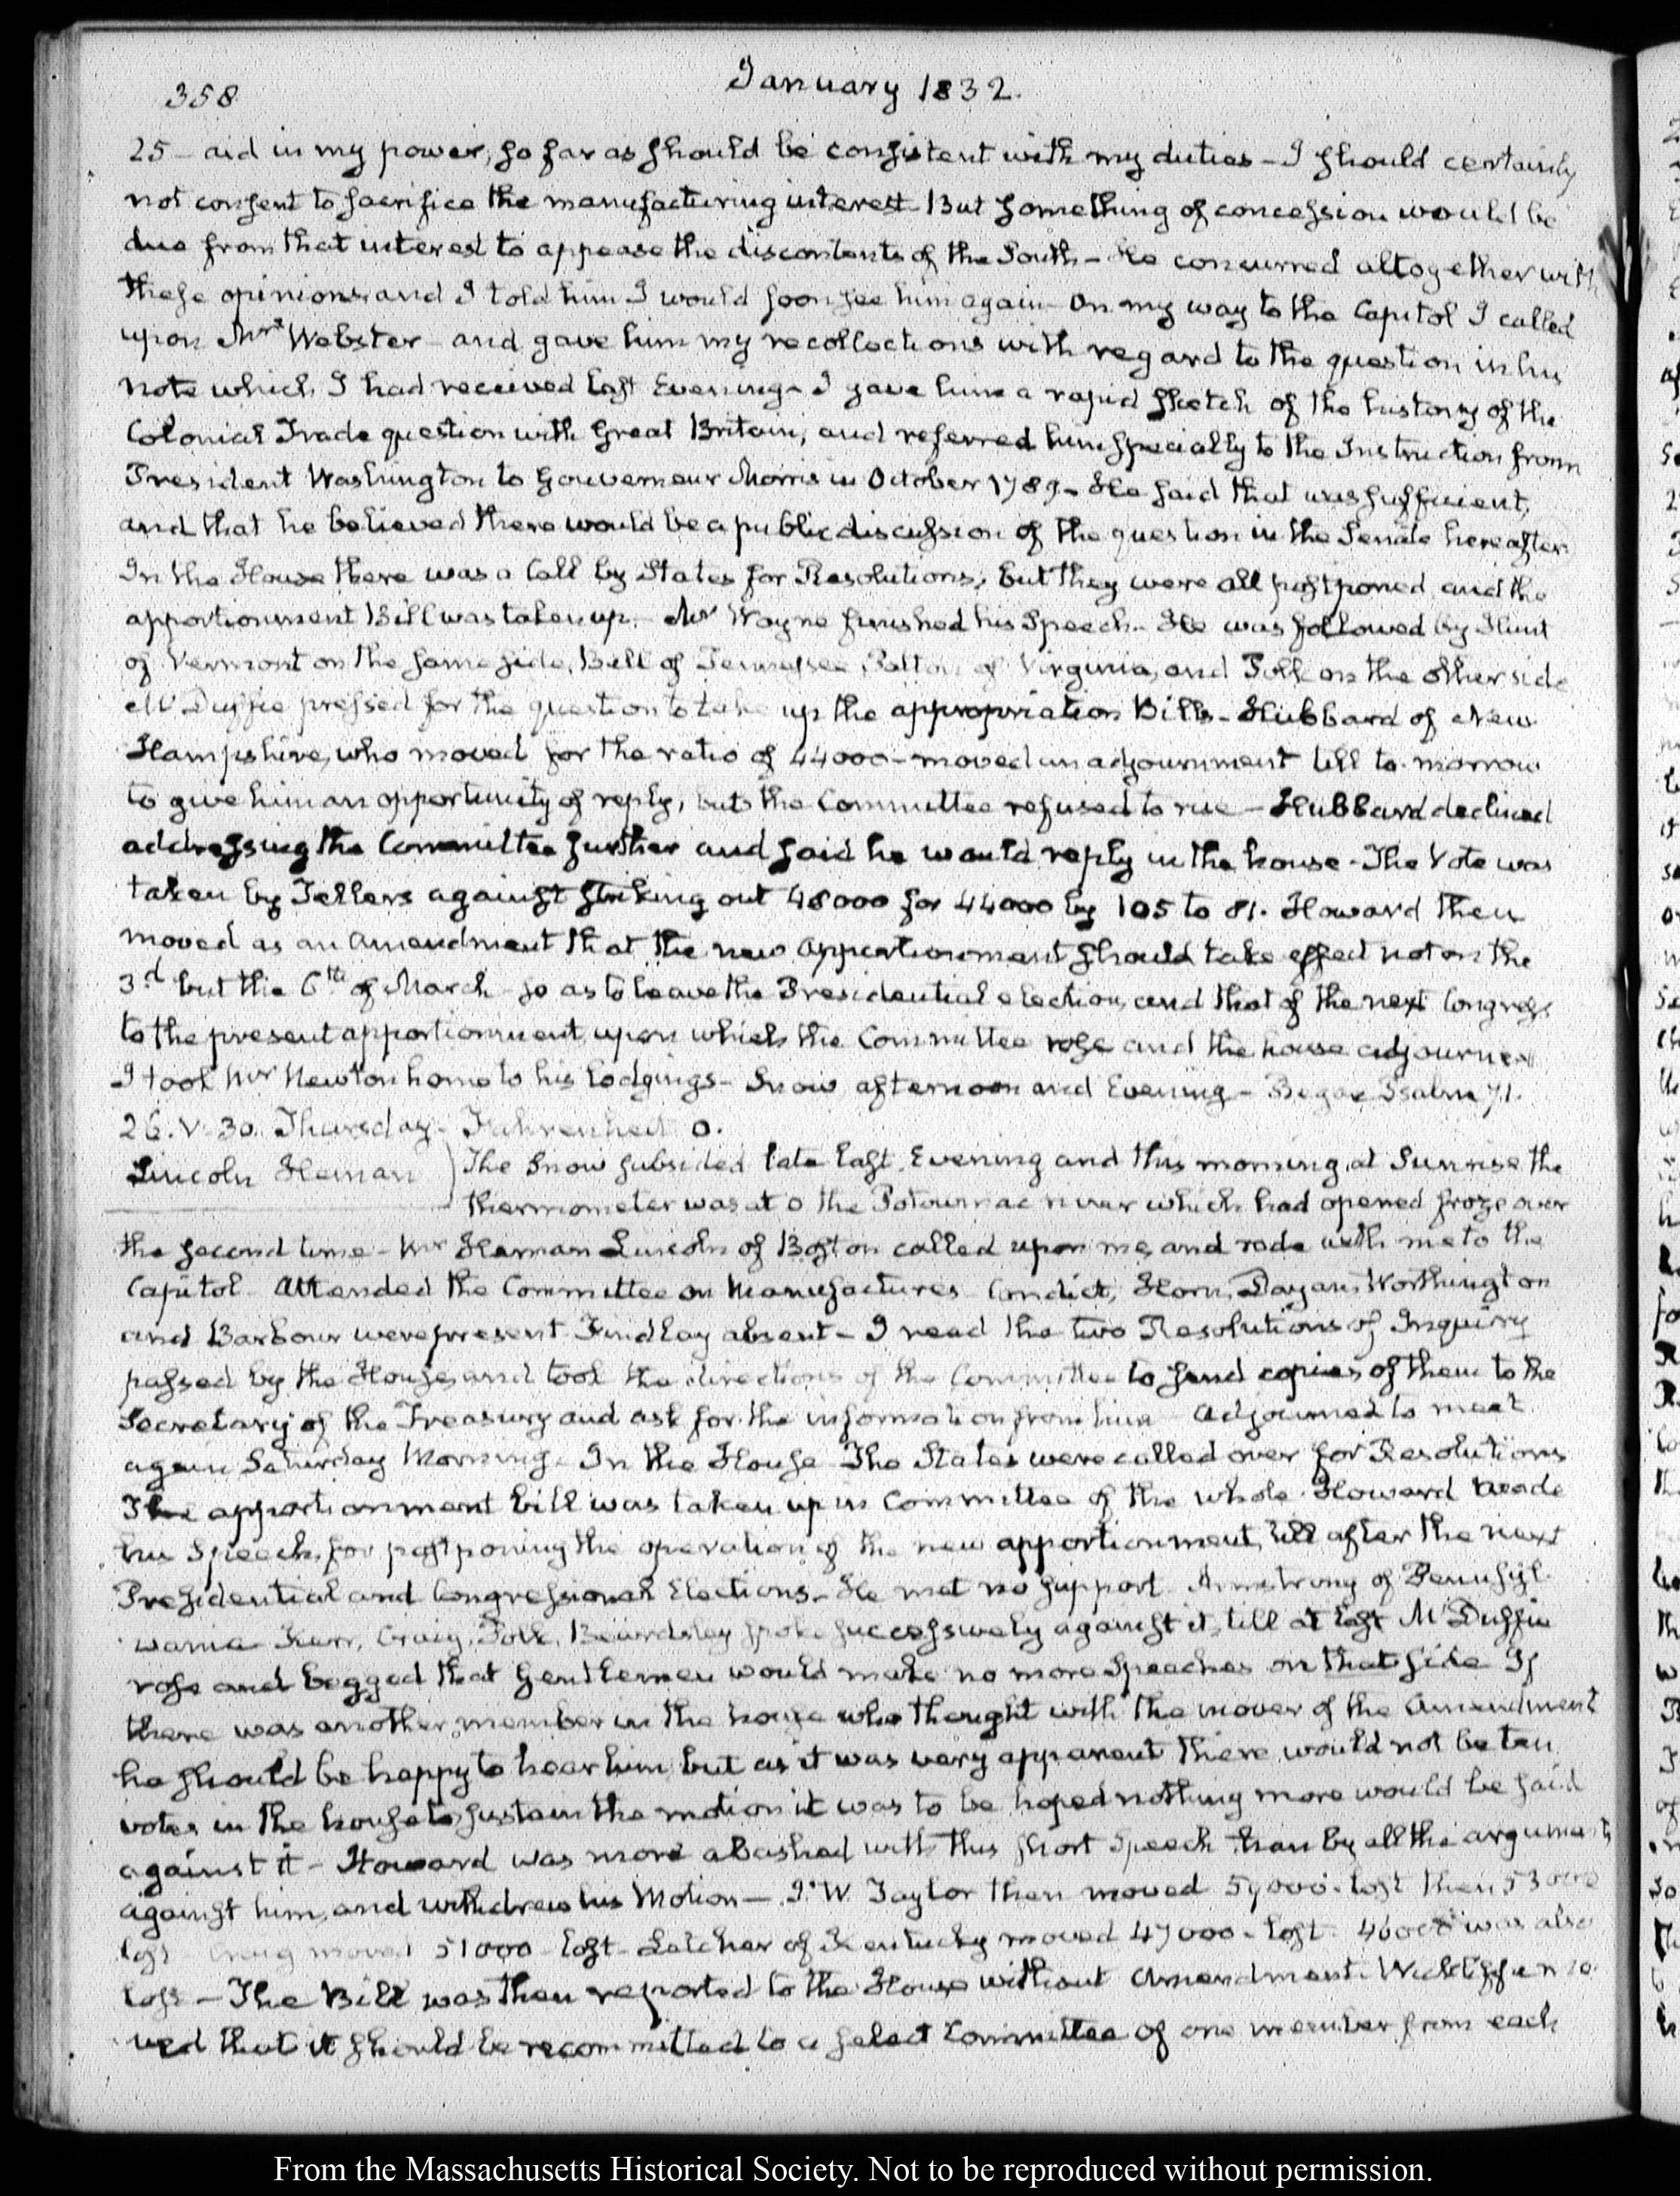 358
January 1832.
25 - aid in my power, so far as should be consistent with my duties - I should certainly
not consent to sacrifice the manufacturing interest - But something of concession would be
due from that interest to appease the discontents of the South - He concurred altogether with
these opinions and I told him I would soon see him again - On my way to the Capitol I called
upon Mr. Webster - and gave him my recollections with regard to the question in his
note which I had received last Evening - I gave him a rapid sketch of the history of the
Colonial Trade question with Great Britain, and referred him specially to the Instruction from
President Washington to Gouverneur Morris in October 1789 - He said that was sufficient,
and that he believed there would be a public discussion of the question in the Senate hereafter
In the House there was a Call by States for Resolutions; but they were all postponed and the
apportionment Bill was taken up. Mr Wayne finished his Speech. He was followed by Hunt
of Vermont on the same side, Bell of Tennessee, Patton of Virginia, and Polk on the other side
McDuffie pressed for the question to take up the appropriation Bills - Hubbard of New
Hampshire, who moved for the ratio of 44000 - moved an adjournment till to-morrow
to give him an opportunity of reply, but the Committee refused to rise - Hubbard declined
addressing the Committee further and said he would reply in the house - The Vote was
taken by Tellers against striking out 48000 for 44000 by 105 to 81. Howard then
moved as an Amendment that the new Apportionment should take effect not on the
3d but the 6th of March so as to leave the Presidential election, and that of the next Congress
to the present apportionment, upon which the Committee rose and the house adjourned
I took Mr Newton home to his lodgings - Snow afternoon and Evening - Began Psalm 71.
26. V. 30. Thursday - Fahrenheit 0.
Lincoln Heman } The Snow subsided late last Evening and this morning at Sunrise the
thermometer was at 0 the Potowmac river which had opened froze over
the second time - Mr Heman Lincoln of Boston called upon me, and rode with me to the
Capitol - Attended the Committee on Manufactures - Condict, Horn, Dayan, Worthington
and Barbour were present - Findlay absent - I read the two Resolutions of Inquiry
passed by the House, and took the directions of the Committee to send copies of them to the
Secretary of the Treasury and ask for the information from him - Adjourned to meet
again Saturday Morning. In the House The States were called over for Resolutions
The apportionment bill was taken up in Committee of the whole - Howard made
his Speech, for postponing the operation of the new apportionment, till after the next
Presidential and Congressional Elections - He met no support. Armstrong of Pennsyl-
vania Kerr, Craig, Polk, Beardsley spoke successively against it, till at last McDuffie
rose and begged that Gentlemen would make no more Speeches on that side If
there was another member in the house who thought with the mover of the Amendment
he should be happy to hear him, but as it was very apparent there would not be ten
votes in the house to sustain the motion it was to be hoped nothing more would be said
against it - Howard was more abashed with this short Speech than by all the arguments
against him, and withdrew his Motion - J. W. Taylor then moved 59000. lost then 53000
lost Craig moved 51000 - lost - Letcher of Kentucky moved 47000 - lost - 46000 was also
lost - The Bill was then reported to the House without Amendment. Wickliffe mo-
ved that it should be recommitted to a select Committee of one member from each
From the Massachusetts Historical Society. Not to be reproduced without permission.